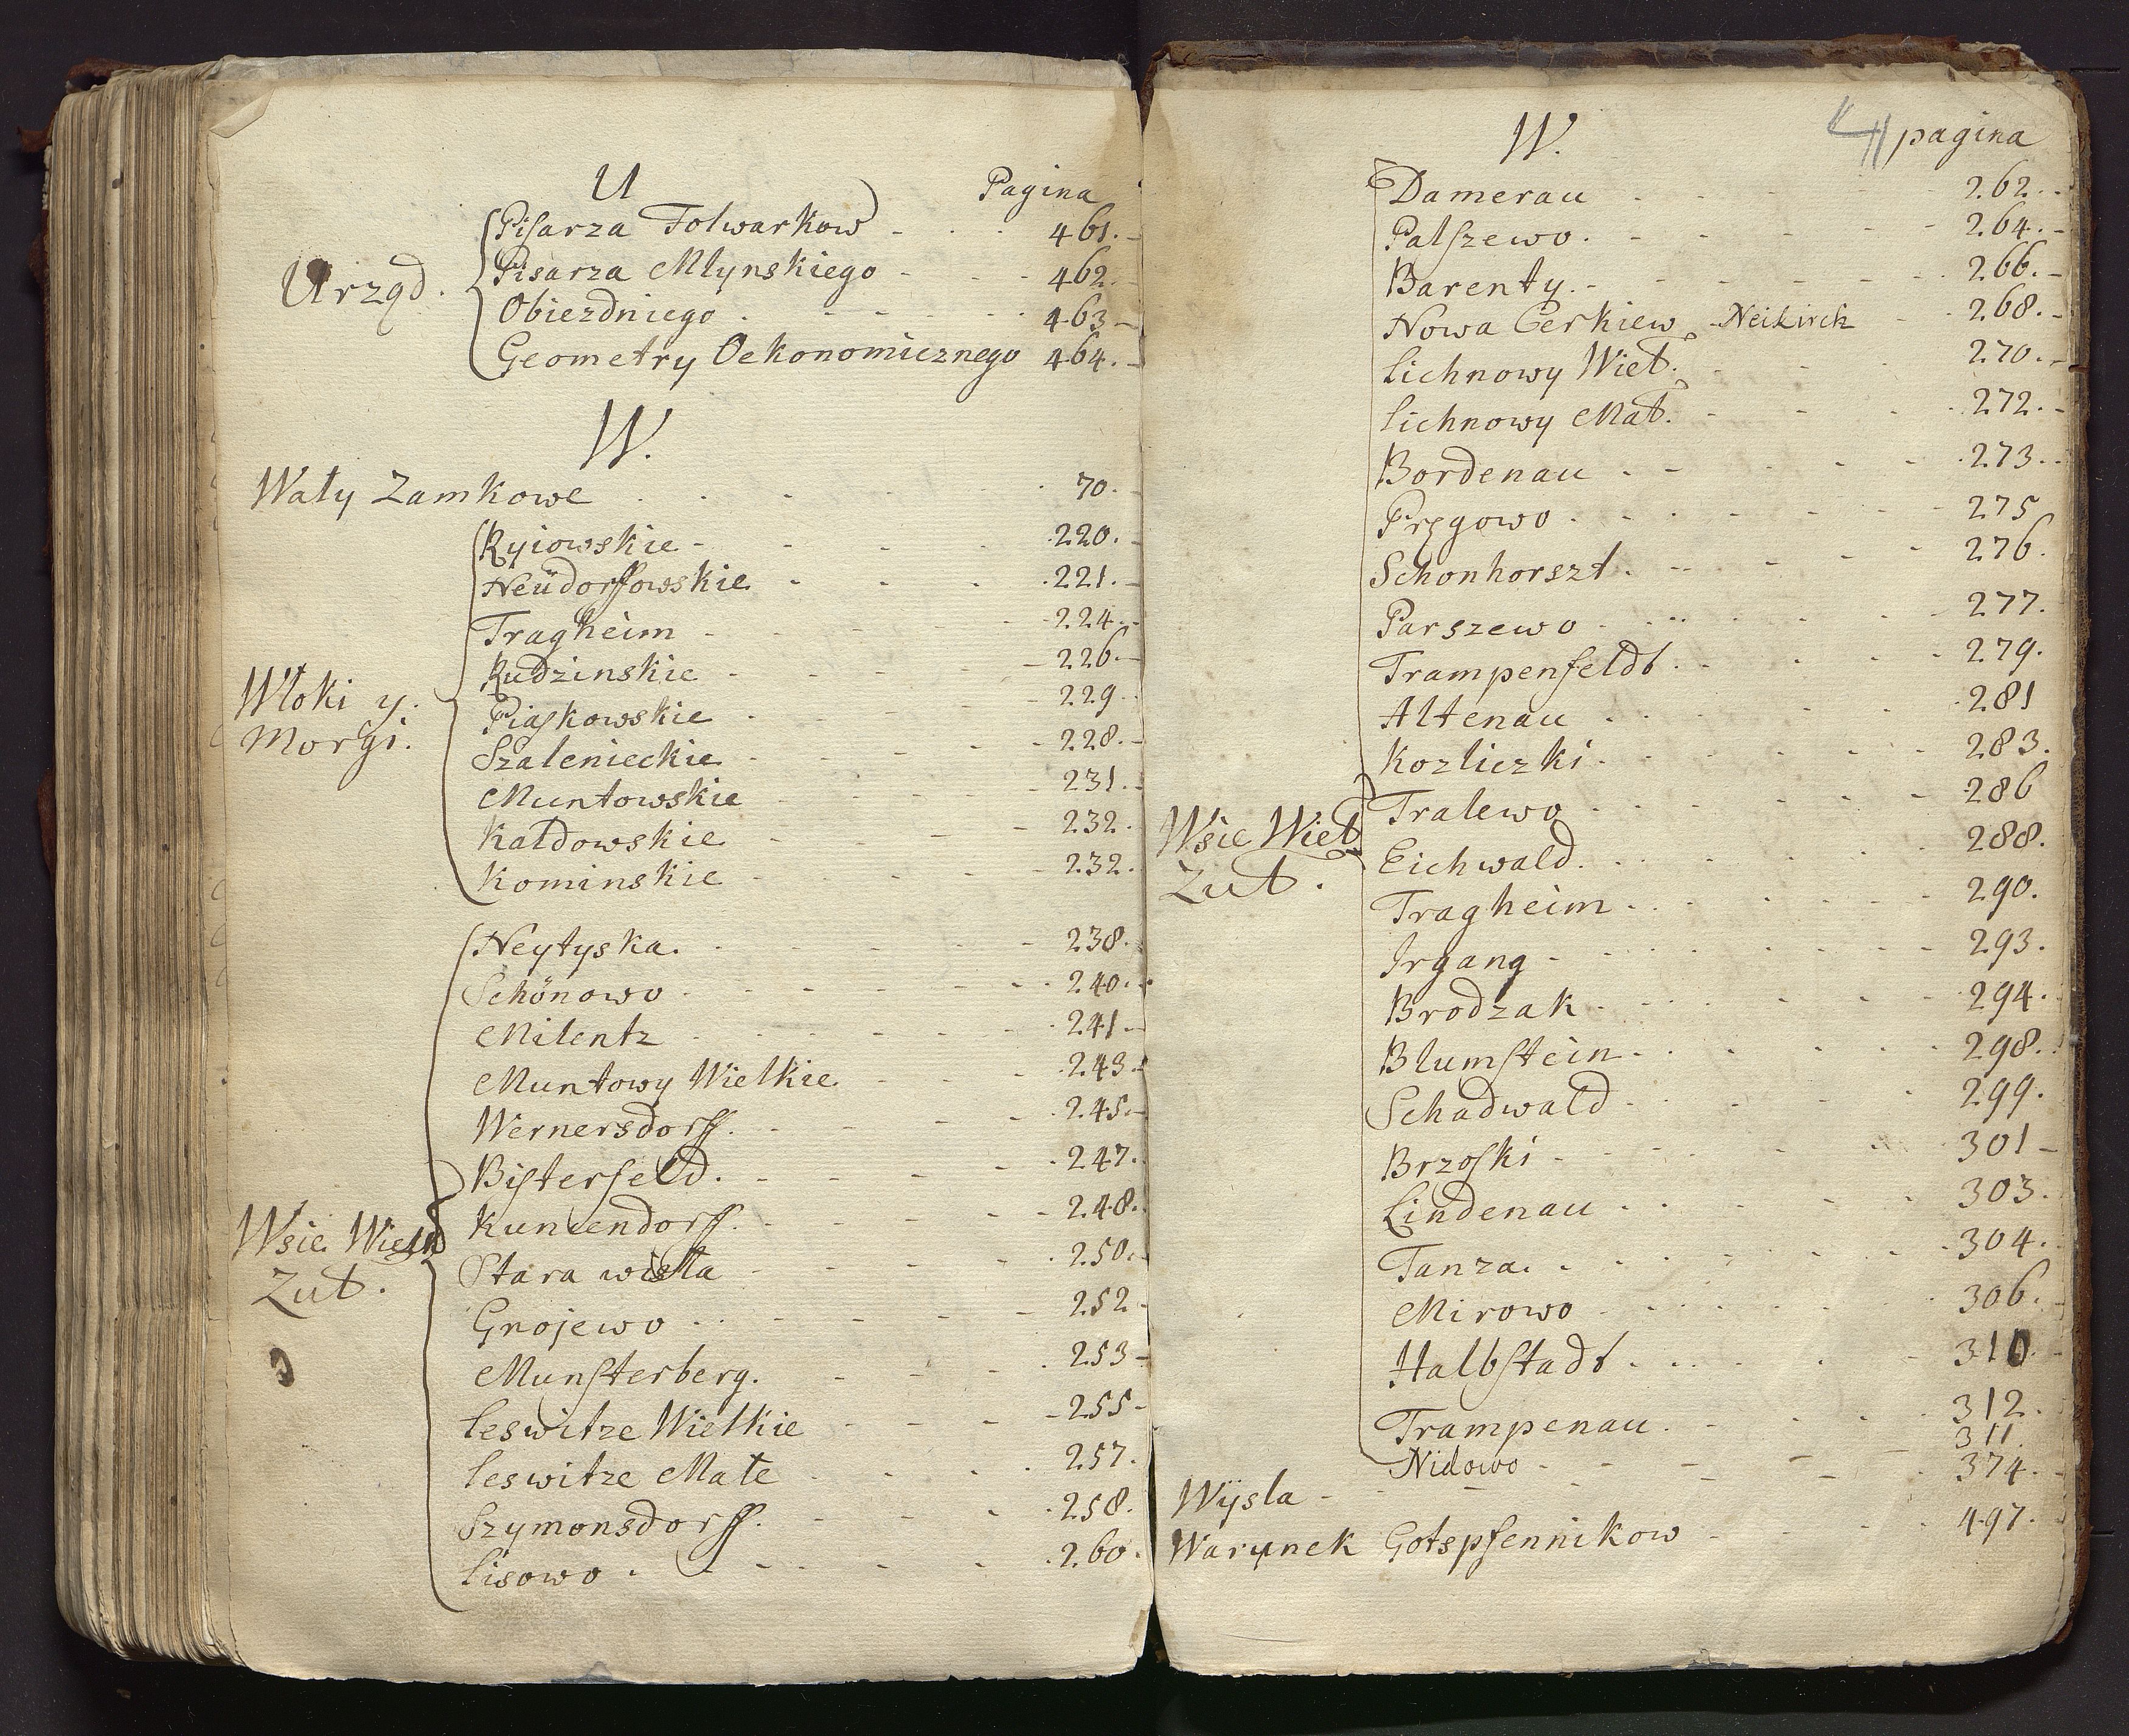 U
Pagina
Urząd.
Pisarza Folwarkow - 461.
Pisarza Młynskiego - 462.
Obiezdniego - 463
Geometry Oekonomicznego 464.
W.
Wały Zamkowe 70.
Włoki y Morgi.
Kyiowskie - 220.
Neüdorffowskie 221.
Tragheim 224.
Rudzinskie 226.
Piaskowskie 229
Szalenieckie 228.
Muntowskie 231.
Kałdowskie 232.
Kominskie 232.
Wsie Wielk
Zuł.
Neytyska. 238.
Schönowo 240.
Milentz 241
Muntowy Wielkie 243
Wernersdorff. 245.
Bisterfeld. 247.
Kuncendorff. 248.
Stara wisła 250.
Gnojewo 252
Munsterberg. 253
Leswitze Wielkie 255
Leswitze Małe 257.
Szymonsdorff. 258.
Lisowo. 260.
W.
pagina
Damerau 262.
Palszewo. 264.
Barenty. 266.
Nowa Cerkiew Neikirch 268.
Lichnowy Wieł. 270.
Lichnowy Mał. 272.
Bordenau 273.
Pręgowo 275
Schonhorszt. 276.
Parszewo 277.
Trampenfeldt. 279.
Altenau 281
Kozliczki. 283.
Wsie Wiel
Zuł.
Tralewo 286
Eichwald. 288.
Tragheim. 290.
Irgang 293.
Brodzak 294.
Blumstein. 298.
Schadwald 299.
Brzoski 301
Lindenau 303.
Tanza. 304.
Mirowo 306.
Halbstadt 310.
Trampenau. 312.
Nidowo 311.
Wÿsla 374.
Warunek Gotspfennikow 497.